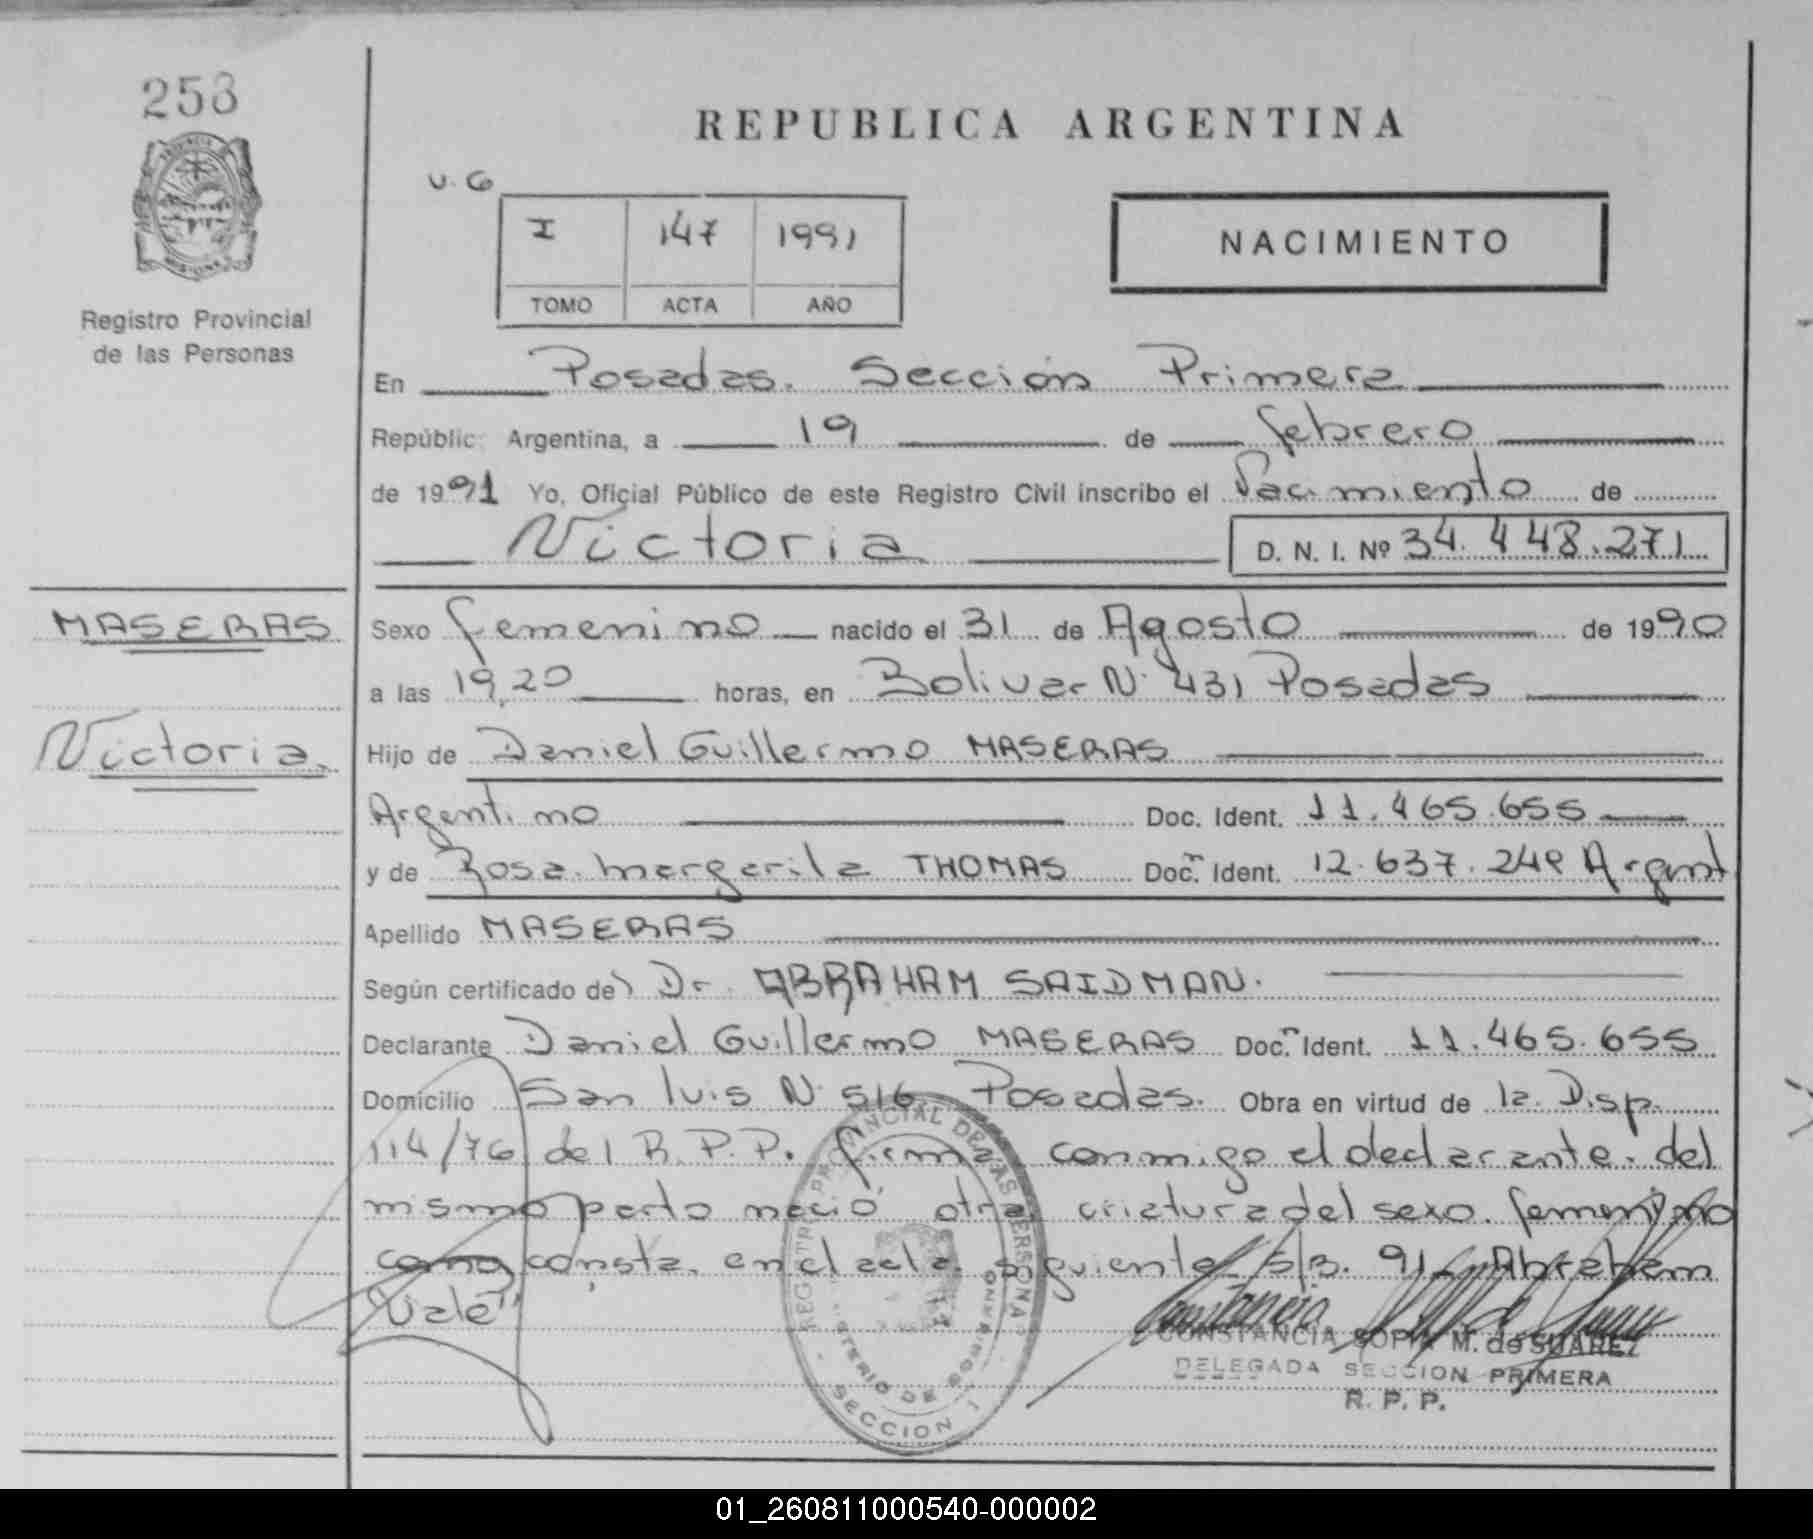 253
REPUBLICA ARGENTINA
U. G
I 147 1991
TOMO ACTA AÑO
NACIMIENTO
Registro Provincial
de las Personas
En Posadas. Sección Primera
Repúblic Argentina, a 19 de febrero
de 1991 Yo, Oficial Público de este Registro Civil inscribo el Nacimiento de
Victoria D. N. I. Nº 34.448.271
MASERAS
Sexo femenino nacido el 31 de Agosto de 1990
a las 19,20 horas, en Bolivar N· 431 Posadas
Victoria.
Hijo de Daniel Guillermo MASERAS
Argentino Doc. Ident. 11.465.655
y de Rosa margarita THOMAS Doc. Ident. 12.637.249 Argent
Apellido MASERAS
Según certificado del Dr. ABRAHAM SAIDMAN.
Declarante Daniel Guillermo MASERAS Doc. Ident. 11.465.655
Domicilio San luis N· 516 Posadas. Obra en virtud de la Disp.
114/76 del R.P.P. firma conmigo el declarante. del
mismo parto nació otra criatura del sexo femenino
como consta en el acta siguiente s/B. 91 Abraham
"Vale"
REGISTRO PROVINCIAL DE LAS PERSONAS
MINISTERIO DE GOBIERNO
SECCION 1
CONSTANCIA SOFIA M. de SUAREZ
DELEGADA SECCION PRIMERA
R. P. P.
01_260811000540-000002